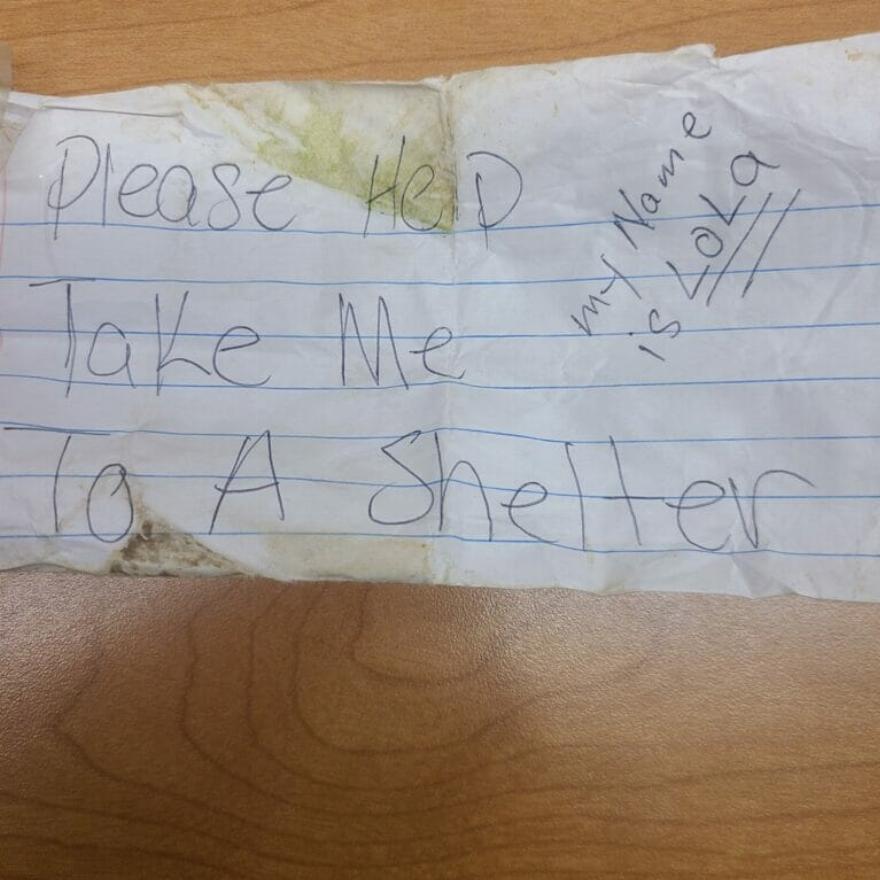 Please HelP
Take Me
To A Shelter
my Name
is LOLa